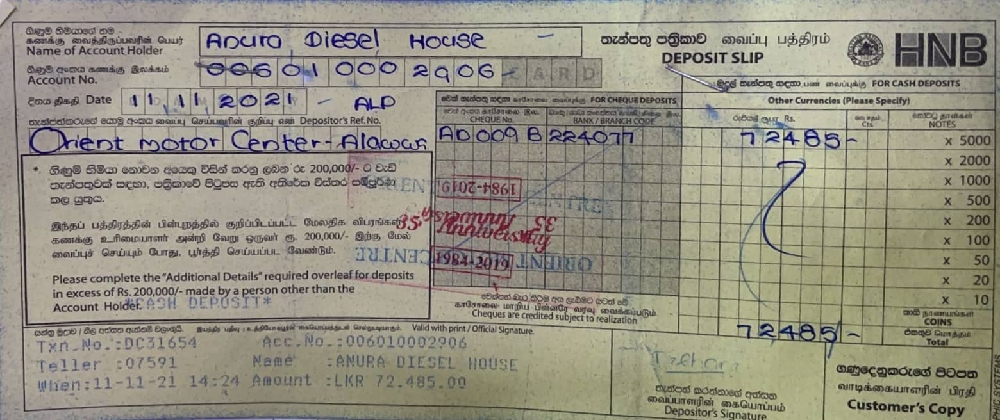 ගිණුම් හිමියාගේ නම
கணக்கு வைத்திருப்பவரின் பெயர்
Name of Account Holder
Anura Diesel House -
තැන්පතු පත්‍රිකාව வைப்பு பத்திரம்
DEPOSIT SLIP
HNB
ගිණුම් අංකය கணக்கு இலக்கம்
Account No.
006010002906- CARD
මුදල් තැන්පතු සඳහා பண வைப்புக்கு FOR CASH DEPOSITS
දිනය திகதி Date 11 11 2021 - ALP
චෙක් තැන්පතු සඳහා காசோலை வைப்புக்கு FOR CHEQUE DEPOSITS
Other Currencies (Please Specify)
Depositor's Ref. No.
CHEQUE No.
BANK / BRANCH CODE
රුපියල් ரூபா Rs.
Cts.
NOTES
Orient Motor Center-Alawwa
AD 009 B 224077
72485-
x 5000
x 2000
x 1000
x 500
x 200
x 100
x 50
x 20
x 10
* ගිණුම් හිමියා නොවන අයෙකු විසින් කරනු ලබන රු 200,000/- ට වැඩි
තැන්පතුවක් සඳහා, පත්‍රිකාවේ පිටුපස ඇති අතිරේක විස්තර සම්පූර්ණ
කල යුතුය.
இந்தப் பத்திரத்தின் பின்புறத்தில் குறிப்பிடப்பட்ட மேலதிக விபரங்கள்
கணக்கு உரிமையாளர் அன்றி வேறு ஒருவர் ரூ. 200,000/- இற்கு மேல்
வைப்புச் செய்யும் போது, பூர்த்தி செய்யப்பட வேண்டும்.
Please complete the "Additional Details" required overleaf for deposits
in excess of Rs. 200,000/- made by a person other than the
Account Holder.
*CASH DEPOSIT*
1984-2019
35
Anniversary
1984-2019
ORIENT CENTRE
காசோலை மாறிய பின்னரே வரவு வைக்கப்படும்.
Cheques are credited subject to realization
COINS
Total
72485-
Valid with print / Official Signature.
Txn.No.:DC31654 Acc.No.:006010002906
Teller :07591 Name :ANURA DIESEL HOUSE
When:11-11-21 14:24 Amount :LKR 72.485.00
තැන්පත් කරන්නාගේ අත්සන
வைப்பாளரின் கையொப்பம்
Depositor's Signature
ගණුදෙනුකරුගේ පිටපත
வாடிக்கையாளரின் பிரதி
Customer's Copy